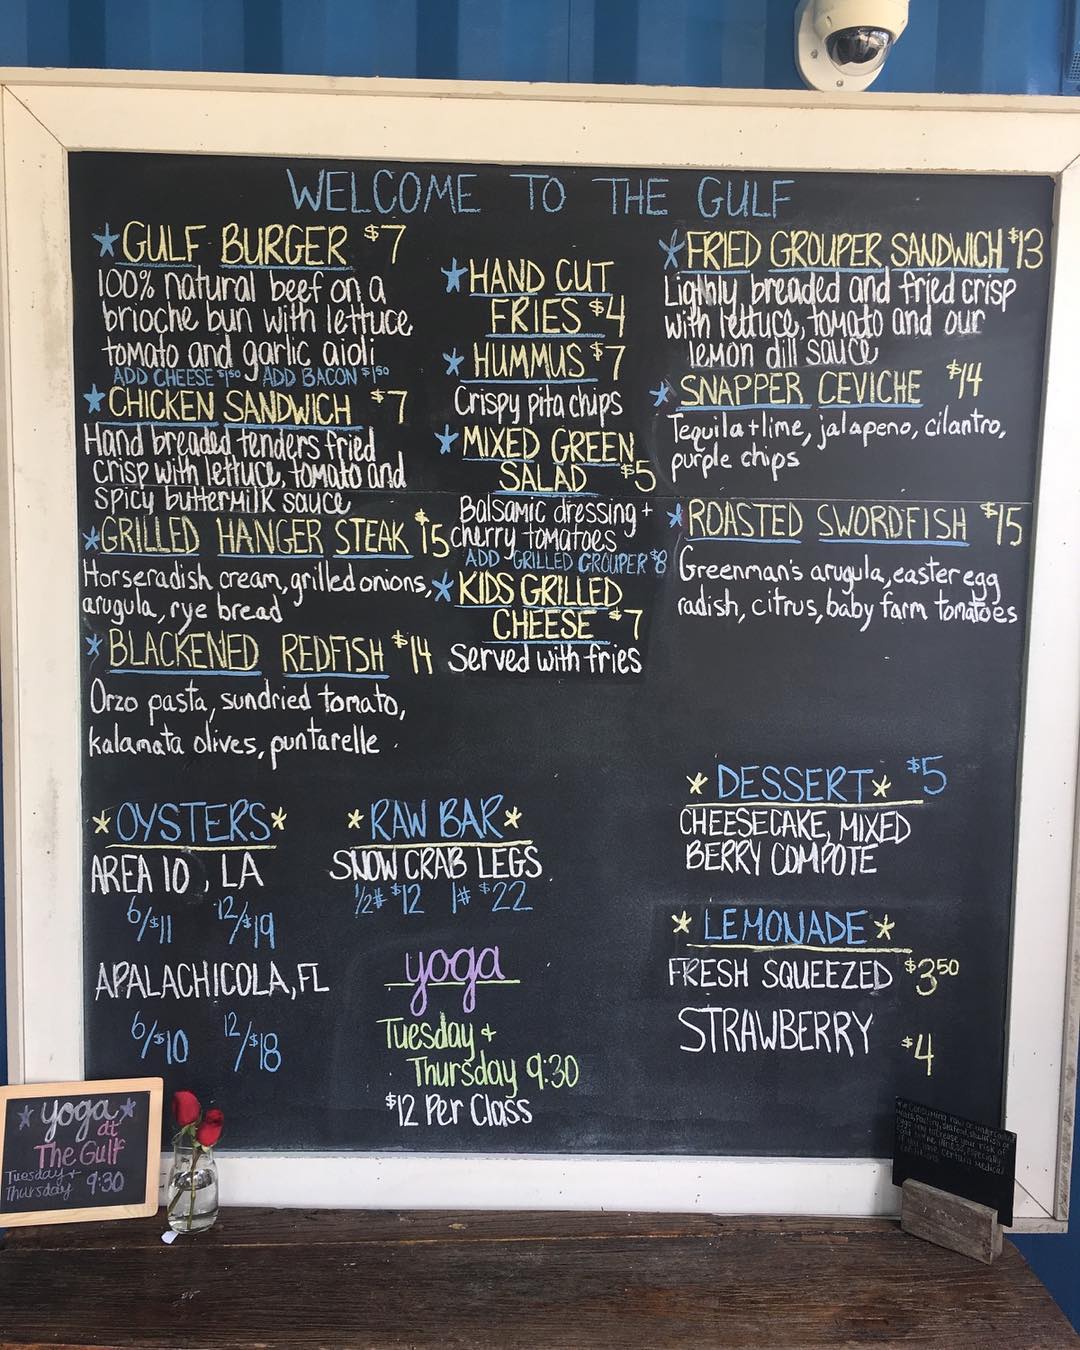 WELCOME TO THE GULF
GULF BURGER $7
100% natural beef on a
brioche bun with lettuce
tomato and garlic aioli
ADD CHEESE $1.50 ADD BACON $1.50
CHICKEN SANDWICH $7
Hand breaded tenders fried
crisp with lettuce, tomato and
spicy buttermilk sauce
GRILLED HANGER STEAK $15
Horseradish cream, grilled onions,
arugula, rye bread
BLACKENED REDFISH $14
Orzo pasta, sundried tomato,
kalamata olives, puntarelle
HAND CUT
FRIES $4
HUMMUS $7
Crispy pita chips
MIXED GREEN
SALAD $5
Balsamic dressing +
cherry tomatoes
ADD GRILLED GROUPER $8
KIDS GRILLED
CHEESE $7
Served with fries
FRIED GROUPER SANDWICH $13
Lighly breaded and fried crisp
with lettuce, tomato and our
lemon dill sauce
SNAPPER CEVICHE $14
Tequila + lime, jalapeno, cilantro,
purple chips
ROASTED SWORDFISH $15
Greenman's arugula, easter egg
radish, citrus, baby farm tomatoes
*OYSTERS*
AREA 10, LA
6/$11 12/$19
APALACHICOLA, FL
6/$10 12/$18
*RAW BAR*
SNOW CRAB LEGS
1/2# $12 1# $22
yoga
Tuesday +
Thursday 9:30
$12 Per Class
*DESSERT* $5
CHEESECAKE, MIXED
BERRY COMPOTE
*LEMONADE*
FRESH SQUEEZED $3.50
STRAWBERRY $4
yoga
at
The Gulf
Tuesday +
Thursday 9:30
consuming raw or undercooked
meats, poultry, seafood, shellfish or
eggs may increase your risk of